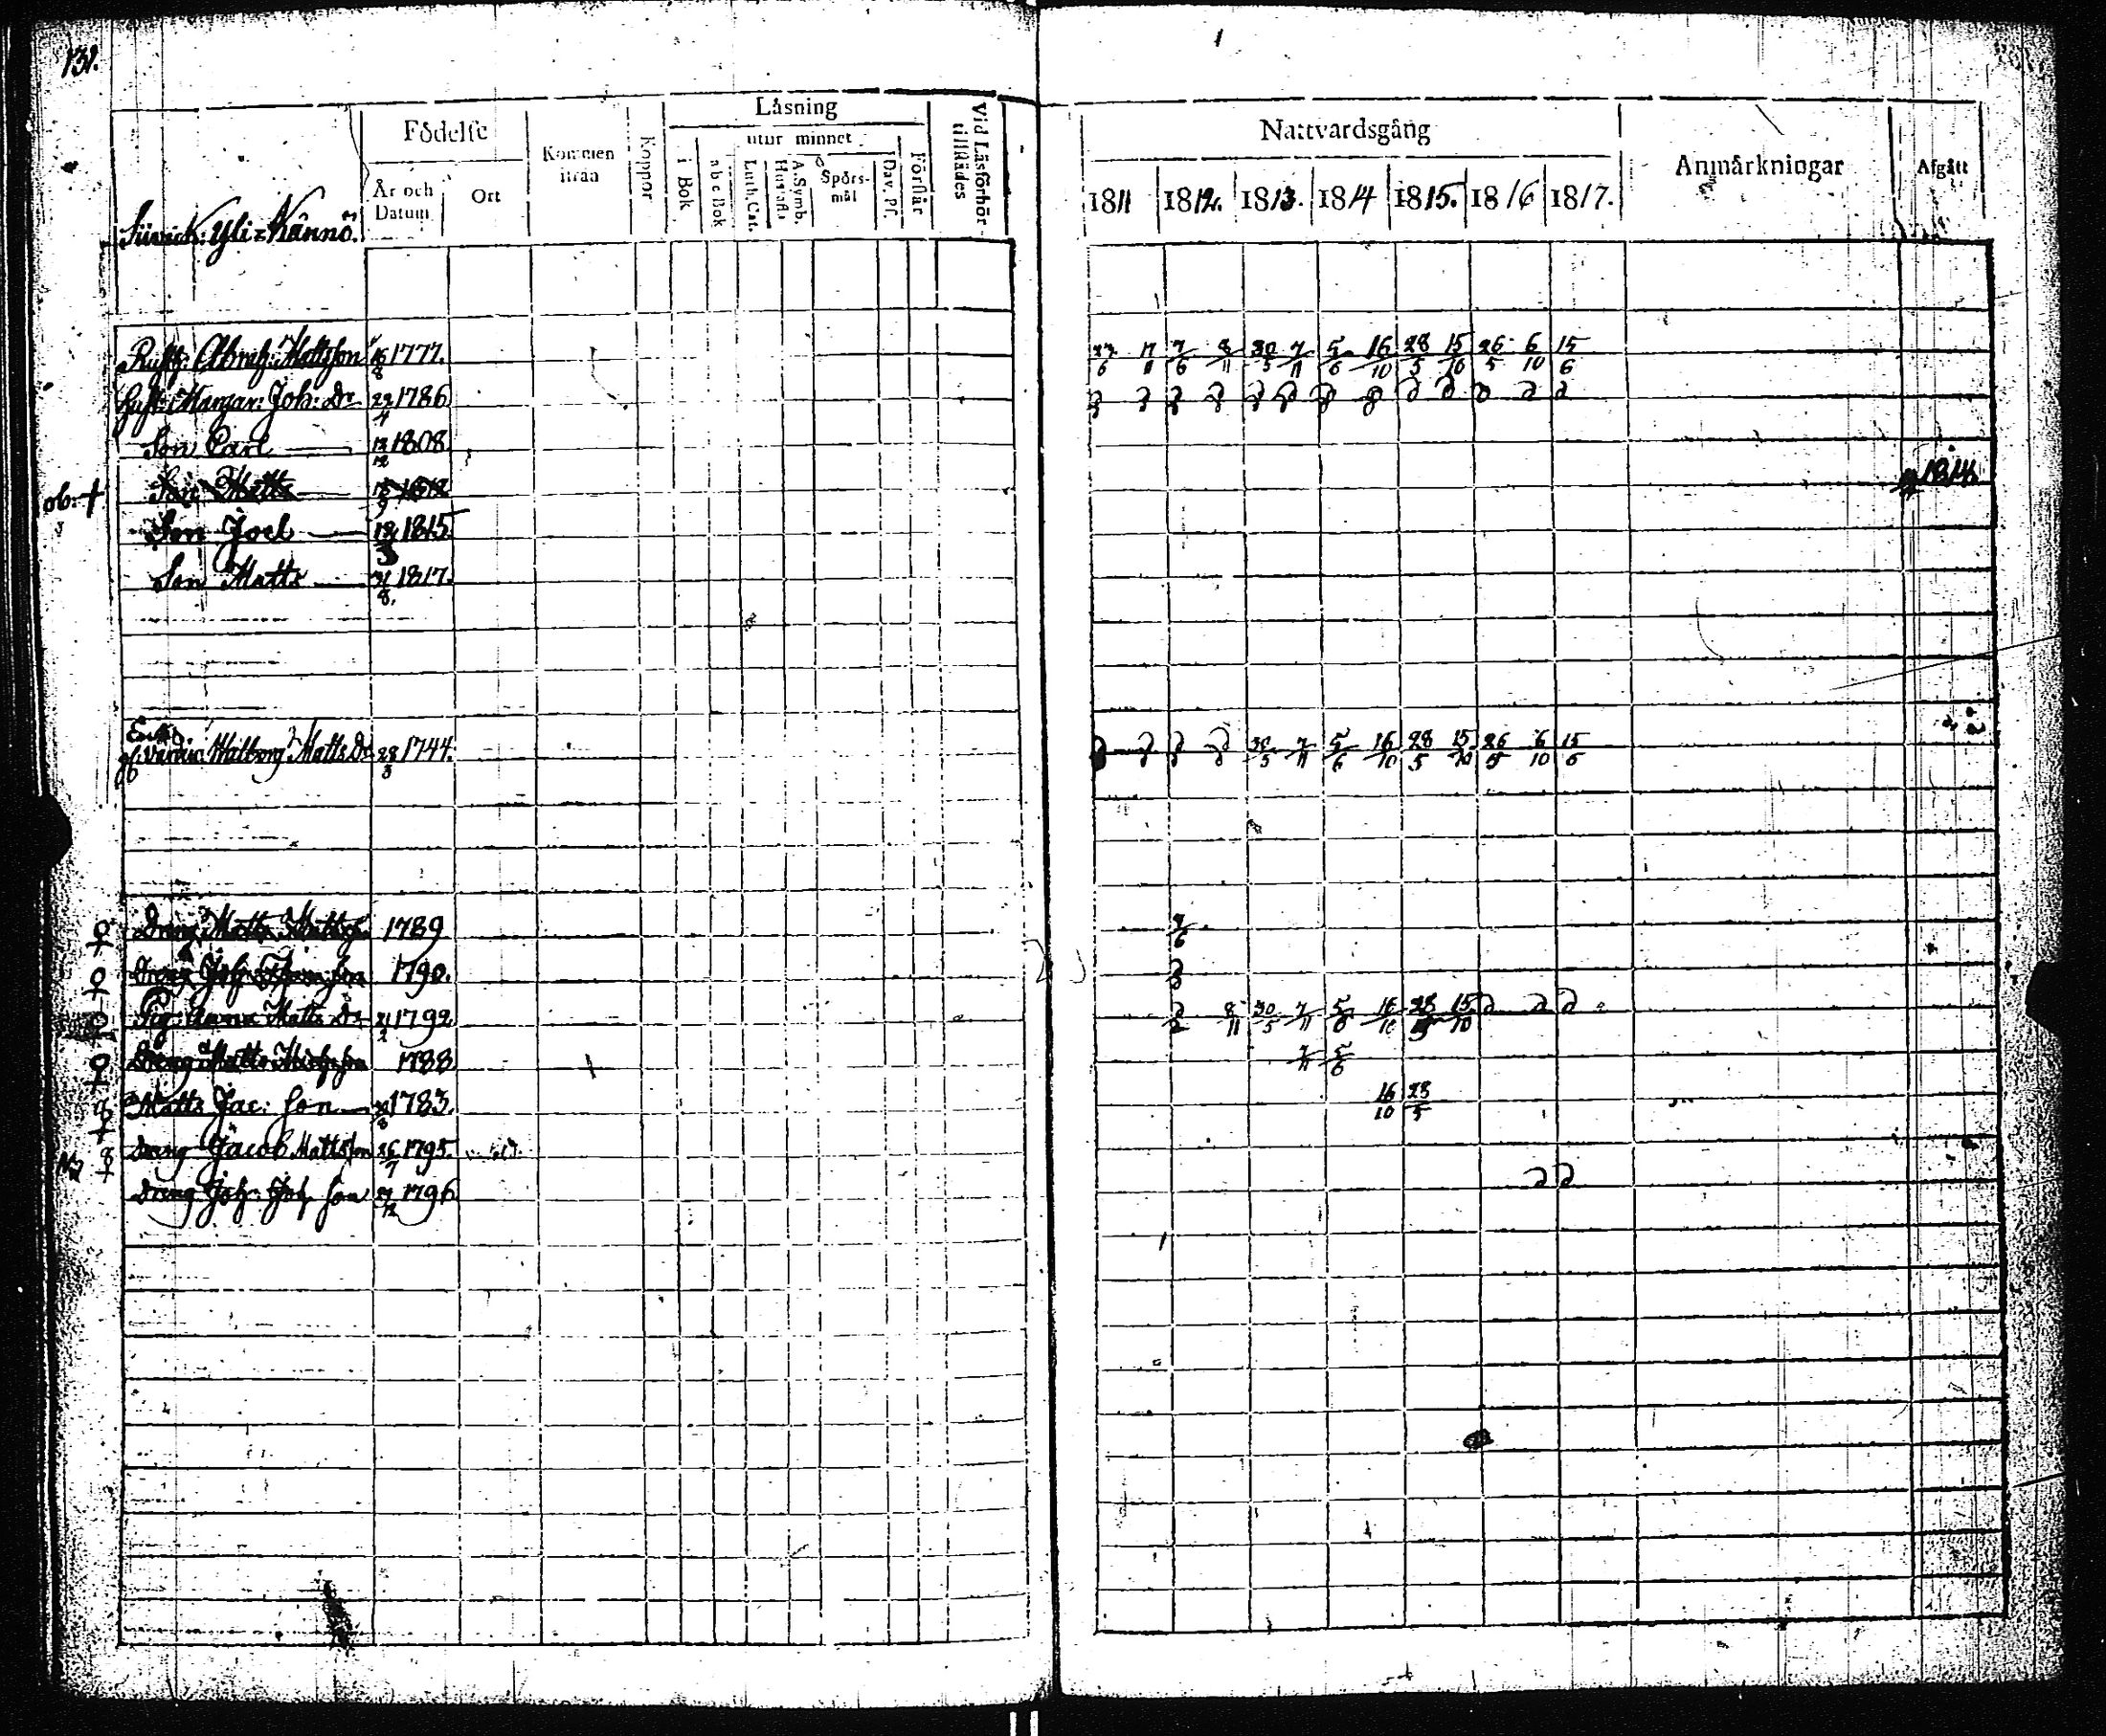 131.
Födelse
Kommen ifrån
Koppor
Läsning
utur minnet
Vid Läsförhör tillstädes
År och Datum
Ort
i Bok
abc Bok
Luth. Cat.
Hustafla
A. Symb.
Spörsmål
Dav. Ps.
Förstår
Nattvardsgång
Anmärkningar
Afgått
1811 1812. 1813. 1814 1815. 1816 1817.
Yli=Kännö.
Abrah: Mattsson 16/8 1777. 17/11 7/6 8/11 30/5 7/11 5/6 16/10 28/5 15/10 26/5 6/10 15/6
Hust: Margar: Joh: Dr 22/4 1786
Son Carl 13/12 1808.
ob. + Son Matts 1812 1814.
Son Joel 18/3 1815
Son Matts 31/8. 1817.
Walborg Matts Dr 28/3 1744. 30/5 7/11 5/6 16/10 28/5 15/10 26/5 6/10 15/6
♀ Dreng Matts Mattss: 1789 7/6
♀ Dreng Joh: 1790.
♀ Pig: Anna Matts Dr 1792 8/11 30/5 7/11 5/6 16/10 28/5 15/10
♀ Dreng Matts 1788 7/11 5/6
Matts Jac: son 1783. 16/10 28/5
Dreng Jacob Mattsson 26/7 1795.
Dreng Joh: Joh son 27/12 1796